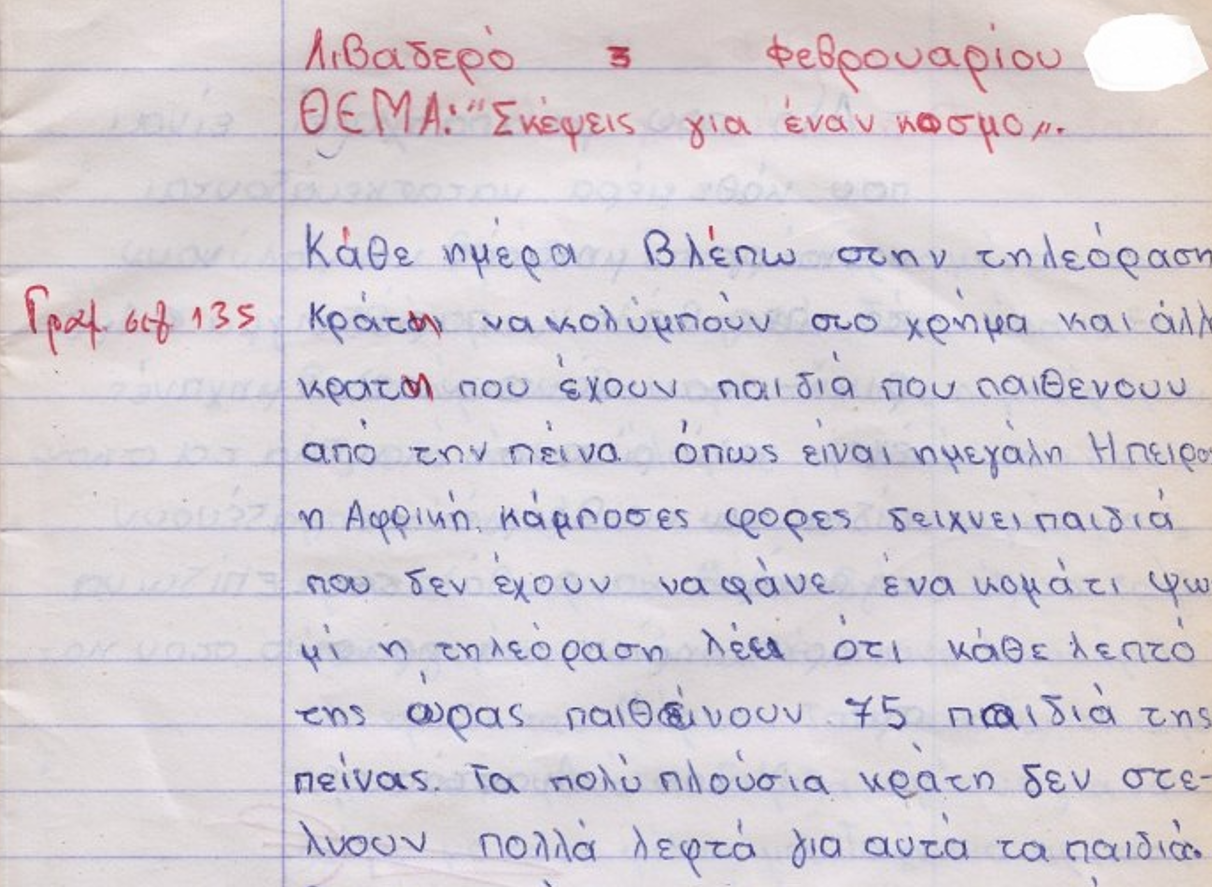 Λιβαδερό 3 Φεβρουαρίου
ΘΕΜΑ: "Σκέψεις για έναν κοσμο".
Κάθε ημέρα Βλέπω στην τηλεόραση
Γραμ. σελ 135 Κράτη να κολύμπούν στο χρήμα και άλλ
κράτη που έχουν παιδιά που παιθενουν
από την πείνα όπως είναι ημεγάλη Ηπειρο
η Αφρική. κάμποσες φορες δειχνει παιδιά
που δεν έχουν να φάνε ένα κομάτι ψω
μί η τηλεόραση λέει ότι κάθε λεπτό
της ώρας παιθαίνουν 75 παιδιά της
πείνας. Τα πολύ πλούσια κράτη δεν στε-
λνουν πολλά λεφτά για αυτά τα παιδιά.